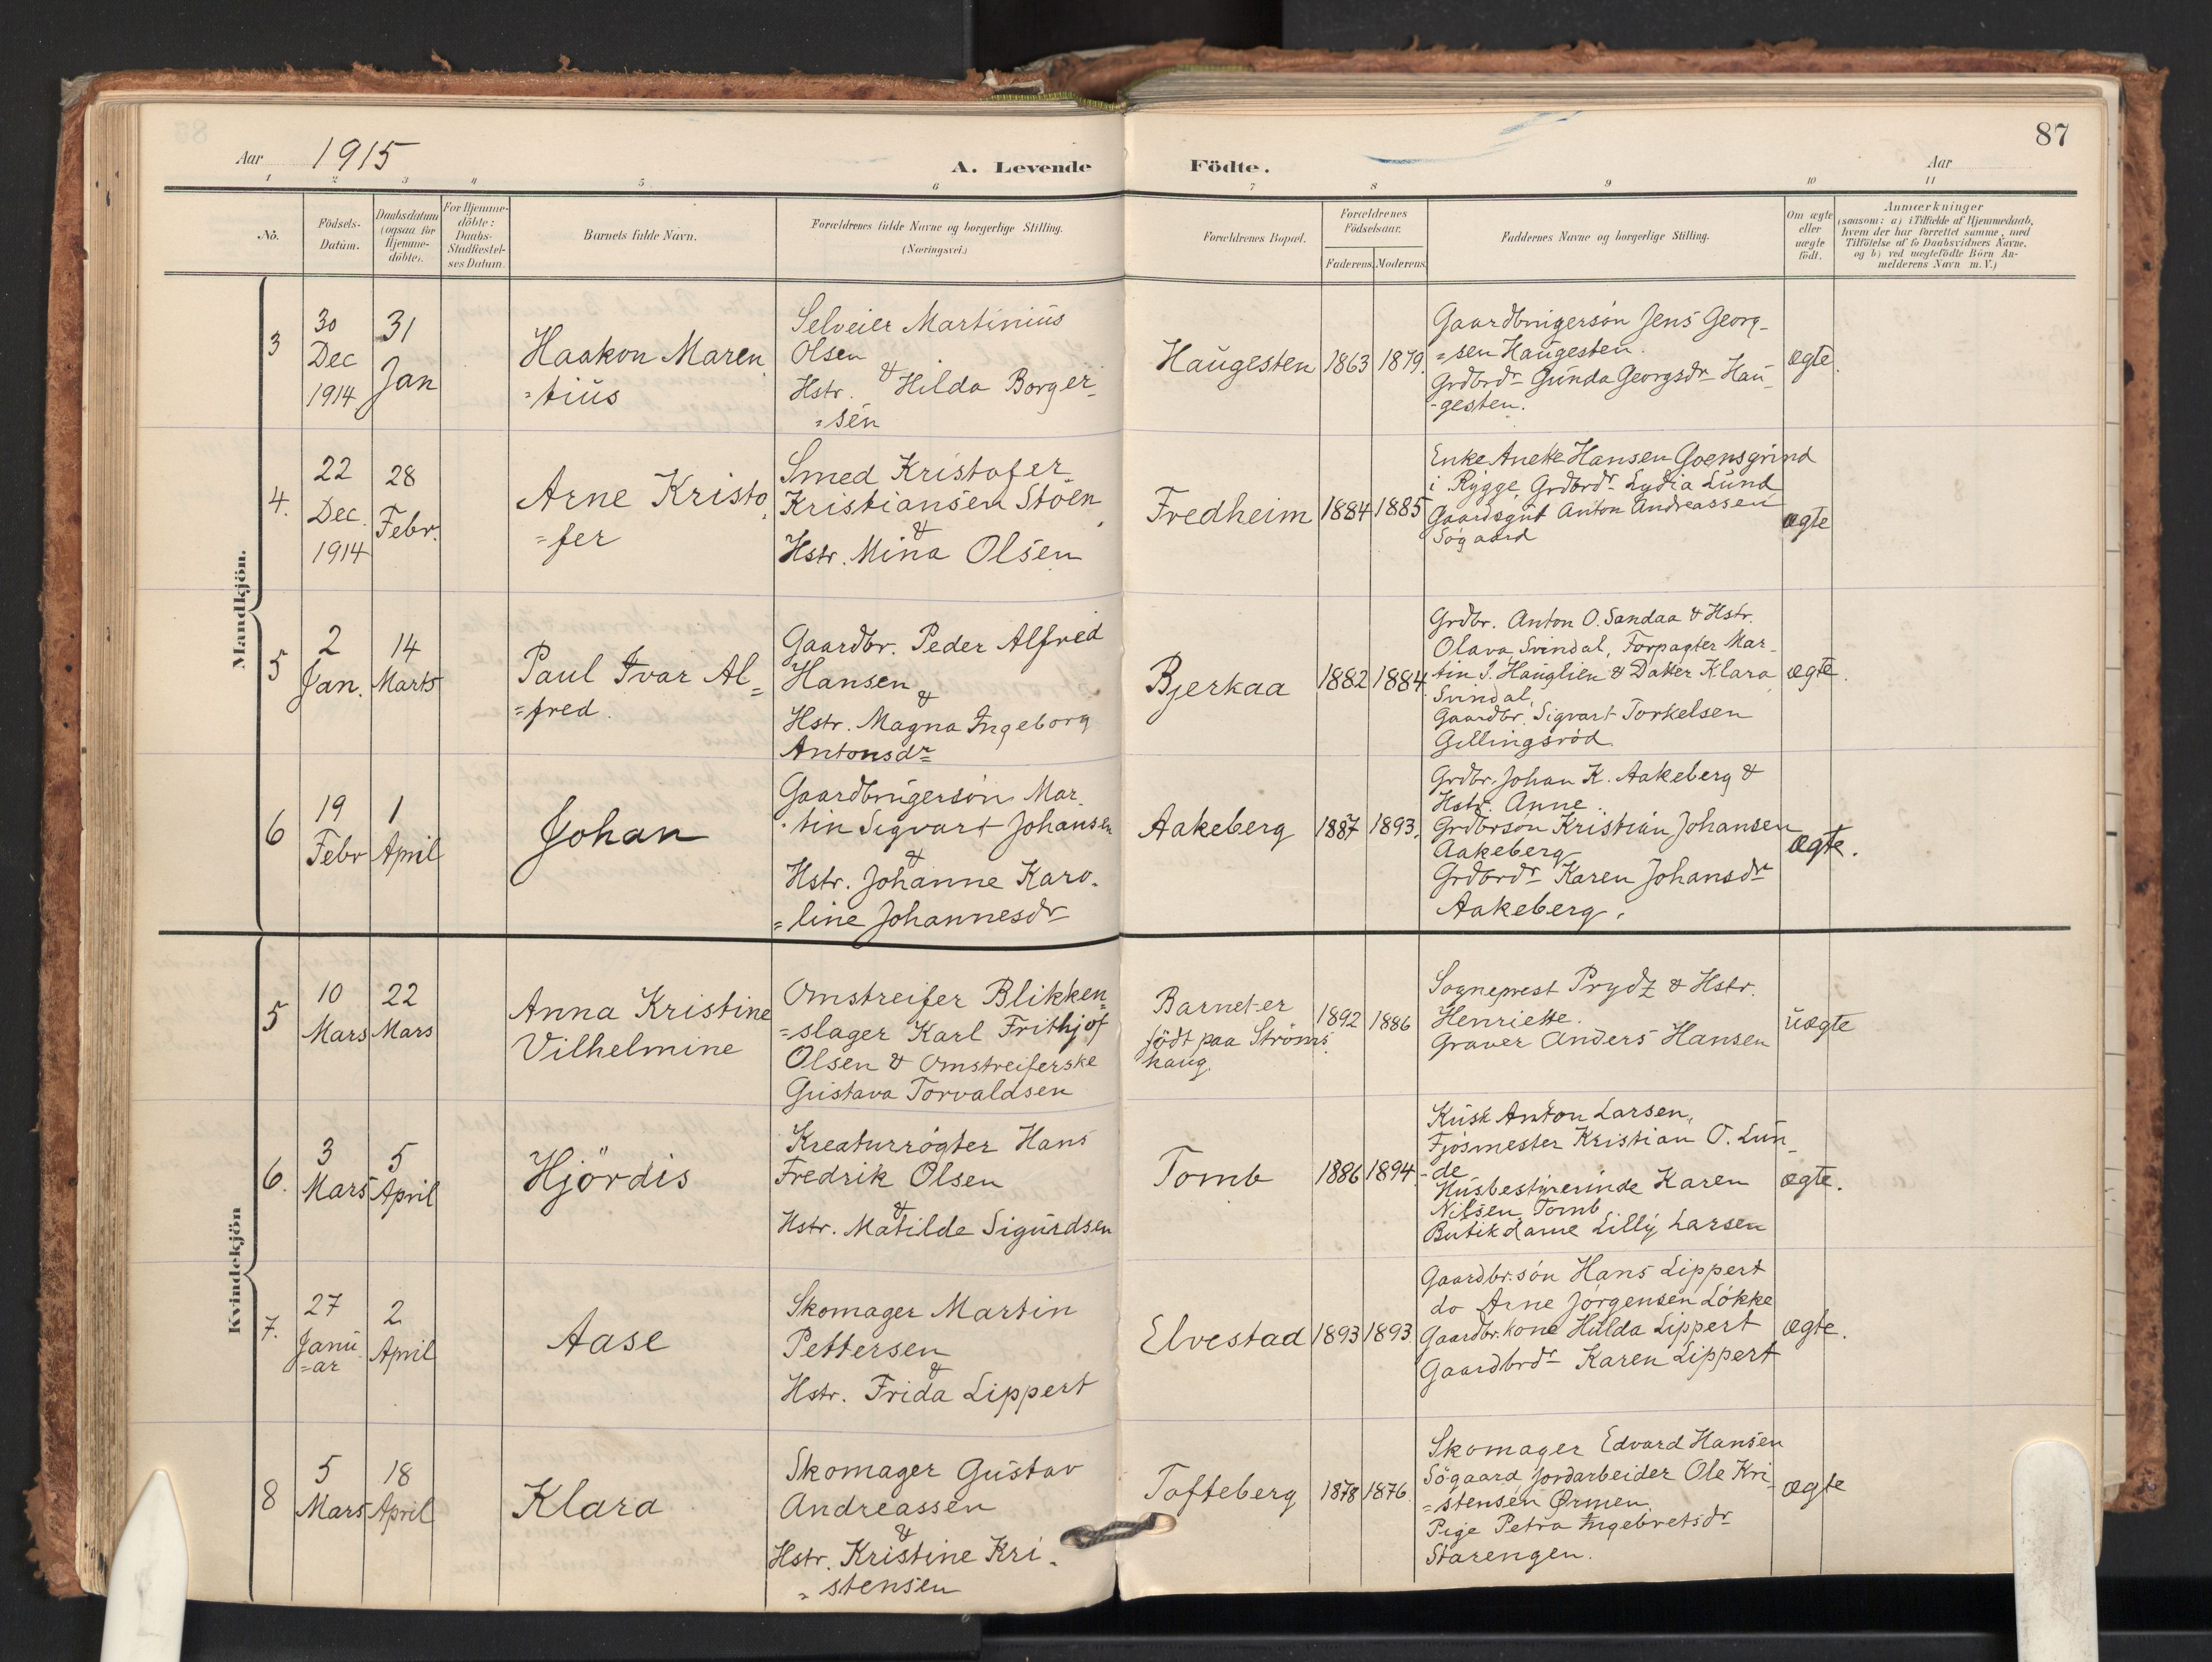 87
Aar 1915
A. Levende Födte.
Aar
1 2 3 4 5 6 7 8 9 10 11
No.
Födsels-
Datum.
Daabsdatum
(ogsaa for
Hjemme-
döbte).
For Hjemme-
döbte:
Daabs-
Stadfæstel-
ses Datum.
Barnets fulde Navn.
Forældrenes fulde Navne og borgerlige Stilling.
(Næringsvei.)
Forældrenes Bopæl.
Forældrenes
Födselsaar.
Faderens. Moderens.
Faddernes Navne og borgerlige Stilling.
Om ægte
eller
uægte
födt.
Anmærkninger
(saasom: a) i Tilfælde af Hjemmedaab,
hvem der har forrettet samme, med
Tilföielse af to Daabsvidners Navne,
og b) ved uægtefödte Börn An-
melderens Navn m. V.)
Mandkjön.
3
30
Dec
1914
31
Jan
Haakon Maren
=tius
Selveier Martinius
Olsen
&
Hstr. Hilda Borger-
=sen
Haugesten
1863
1879.
Gaardbrugersön Jens Georg-
=sen Haugesten.
Grdbrdr Gunda Georgsdr Hau-
-gesten.
ægte.
4.
22
Dec.
1914
28
Febr.
Arne Kristo
=fer
Smed Kristofer
Kristiansen Stöen
&
Hstr. Mina Olsen
Fredheim
1884
1885
Enke Anette Hansen Goensgrind
i Rygge, Grdbrdr Lydia Lund
Gaardsgut Anton Andreassen
Sögaard
ægte
5
2
Jan.
14
Marts
Paul Ivar Al=
=fred.
Gaardbr. Peder Alfred
Hansen
&
Hstr. Magna Ingeborg
Antonsdr
Bjerkaa
1882
1884.
Grdbr. Anton O. Sandaa & Hstr.
Olava Svindal, Forpagter Mar-
tin J. Hauglien & Datter Klara
Svindal,
Gaardbr. Sigvart Torkelsen
Gillingsröd.
ægte.
6
19
Febr
1
April
Johan
Gaardbrugersön Mar-
tin Sigvart Johansen
&
Hstr. Johanne Karo-
=line Johannesdr
Aakeberg
1887
1893.
Grdbr. Johan K. Aakeberg &
Hstr. Anne.
Grdbrsön Kristian Johansen
Aakeberg
Grdbrdr Karen Johansdr
Aakeberg.
ægte.
Kvindekjön
5
10
Mars
22
Mars
Anna Kristine
Vilhelmine
Omstreifer Blikken=
=slager Karl Frithjof
Olsen & Omstreiferske
Gustava Torvaldsen
Barnet er
födt paa Ströms-
haug.
1892
1886
Sogneprest Prydz & Hstr.
Henriette.
Graver Anders Hansen
uægte
6.
3
Mars
5
April
Hjördis
Kreaturrögter Hans
Fredrik Olsen
&
Hstr. Matilde Sigurdsen
Tomb
1886
1894.
Kusk Anton Larsen,
Fjösmester Kristian O. Lun-
-de
Husbestyrerinde Karen
Nilsen, Tomb
Butikdame Lilly Larsen
ægte.
7.
27
Janu
=ar
2
April
Aase
Skomager Martin
Pettersen
&
Hstr. Frida Lippert
Elvestad
1893
1893.
Gaardbr.sön Hans Lippert
do Arne Jörgensen Lökke
Gaardbr.kone Hulda Lippert
Gaardbrdr Karen Lippert
ægte.
8
5
Mars
18
April
Klara
Skomager Gustav
Andreassen
&
Hstr. Kristine Kri-
=stensen
Tofteberg
1878
1876.
Skomager Edvard Hansen
Sögaard Jordarbeider Ole Kri-
=stensen Ørmen,
Pige Petra Ingebretsdr
Starengen.
ægte